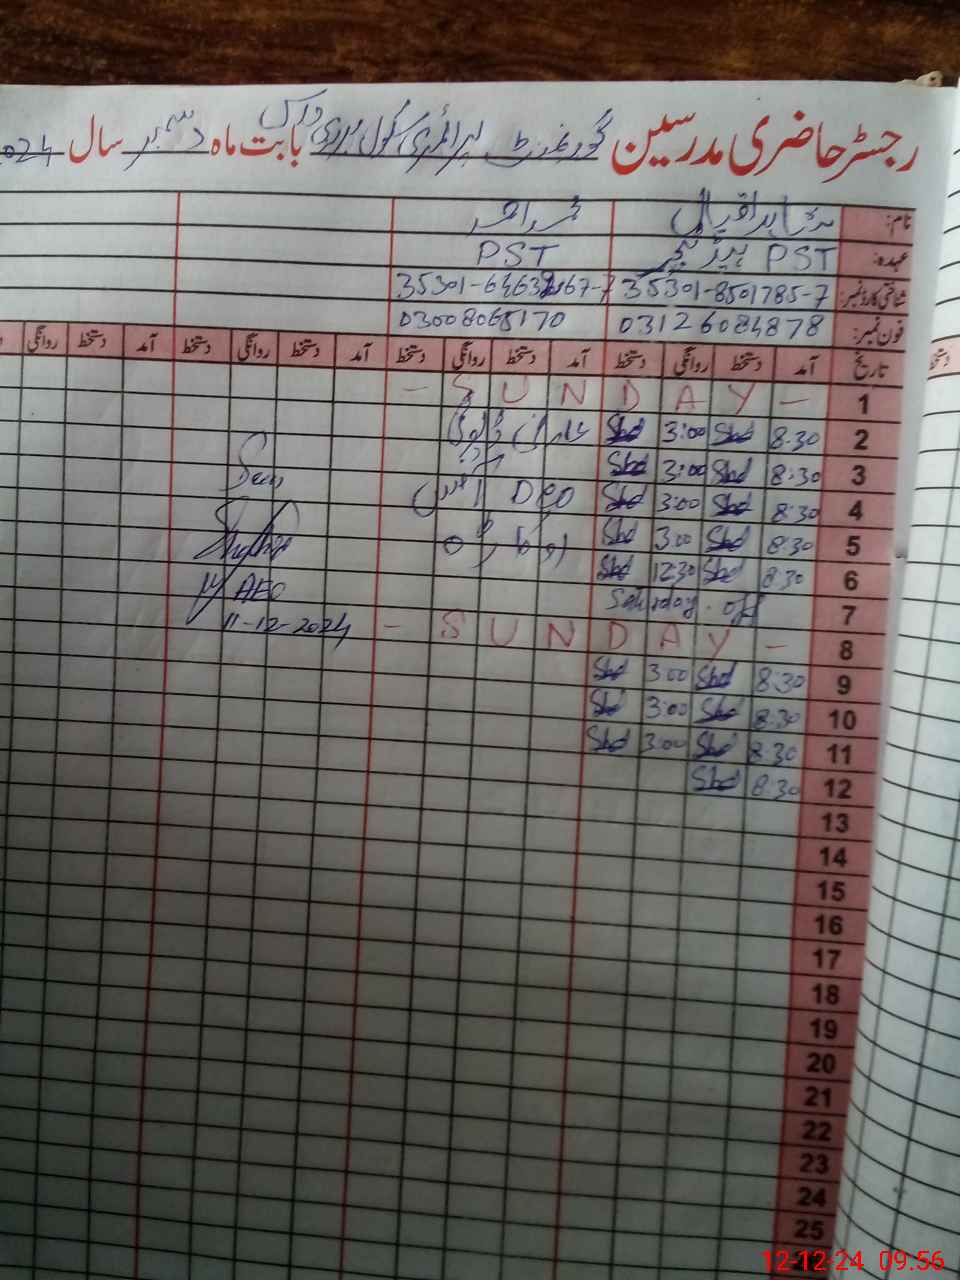 رجسٹر حاضری مدرسین گورنمنٹ پرائمری سکول بابت ماہ دسمبر سال 2024
نام: شاہد اقبال
عہدہ: PST ہیڈ ٹیچر PST
شناختی کارڈ نمبر: 35301-8501785-7
فون نمبر: 03126084878 03008065170
تاریخ آمد دستخط روانگی دستخط آمد دستخط روانگی دستخط آمد دستخط روانگی دستخط آمد دستخط روانگی
1 - SUNDAY -
2 8.30 Shd 3:00 Shd عارضی ڈیوٹی
3 8:30 Shd 3:00 Shd
4 8:30 Shd 3:00 Shd DEO آفس
5 8:30 Shd 3:00 Shd اوکاڑہ
6 8:30 Shd 12:30 Shd
7 Saturday . off
AEO
11-12-2024
8 - SUNDAY -
9 8:30 Shd 3:00 Shd
10 8:30 Shd 3:00 Shd
11 8:30 Shd 3:00 Shd
12 8:30 Shd
13
14
15
16
17
18
19
20
21
22
23
24
25
12-12-24 09.56